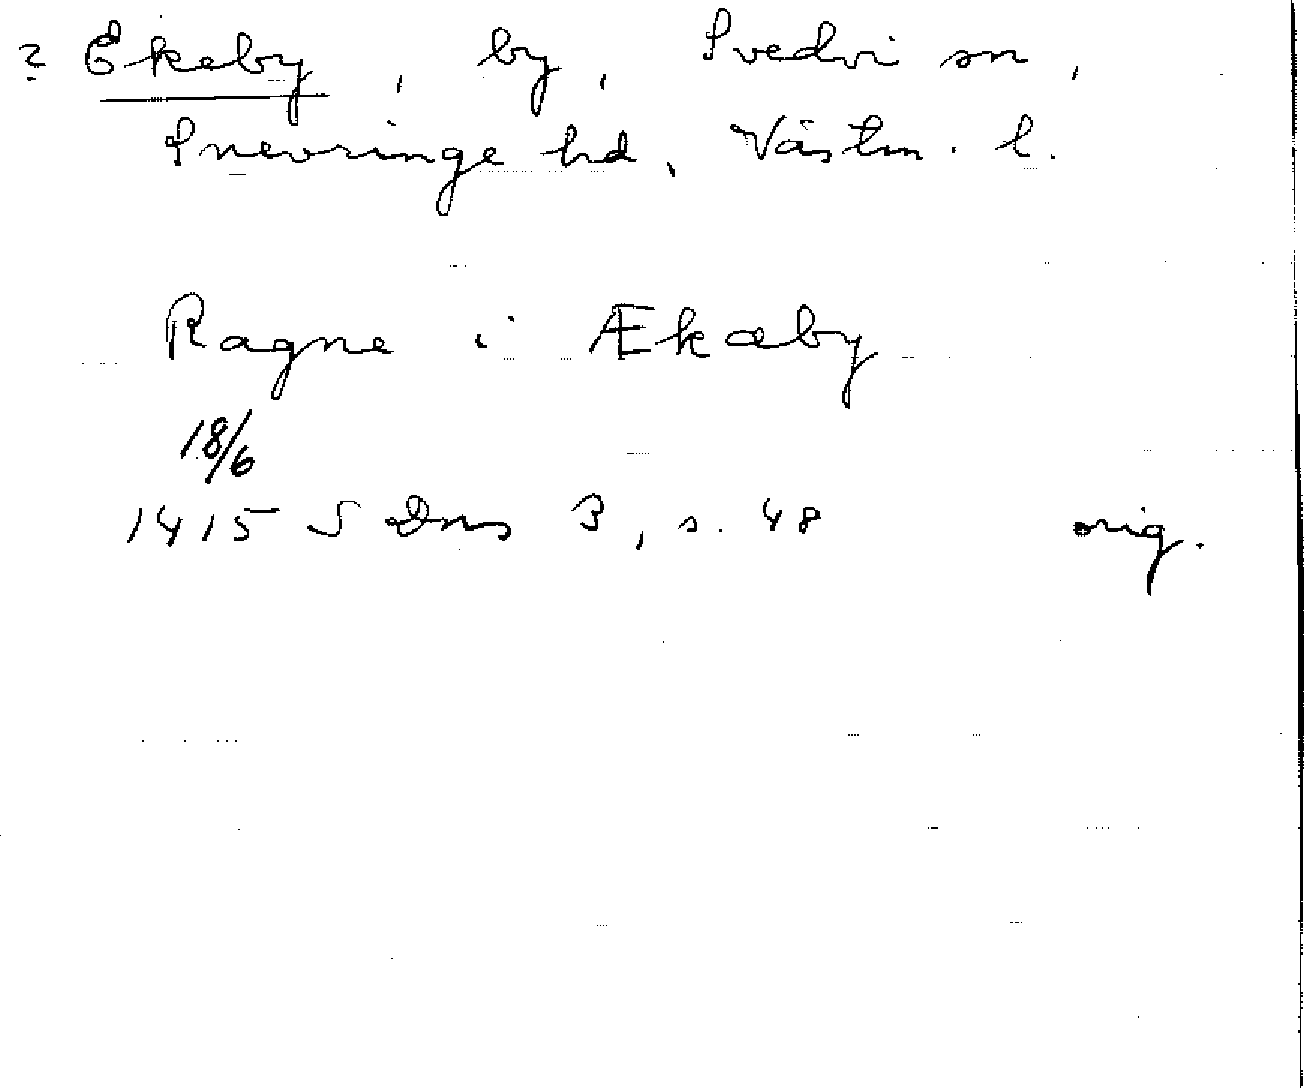 ? Ekeby, by, Svedvi sn,
Snevringe hd, Västm. l.
Ragne i Ækæby
18/6
1415 S Dns 3, s. 48 orig.